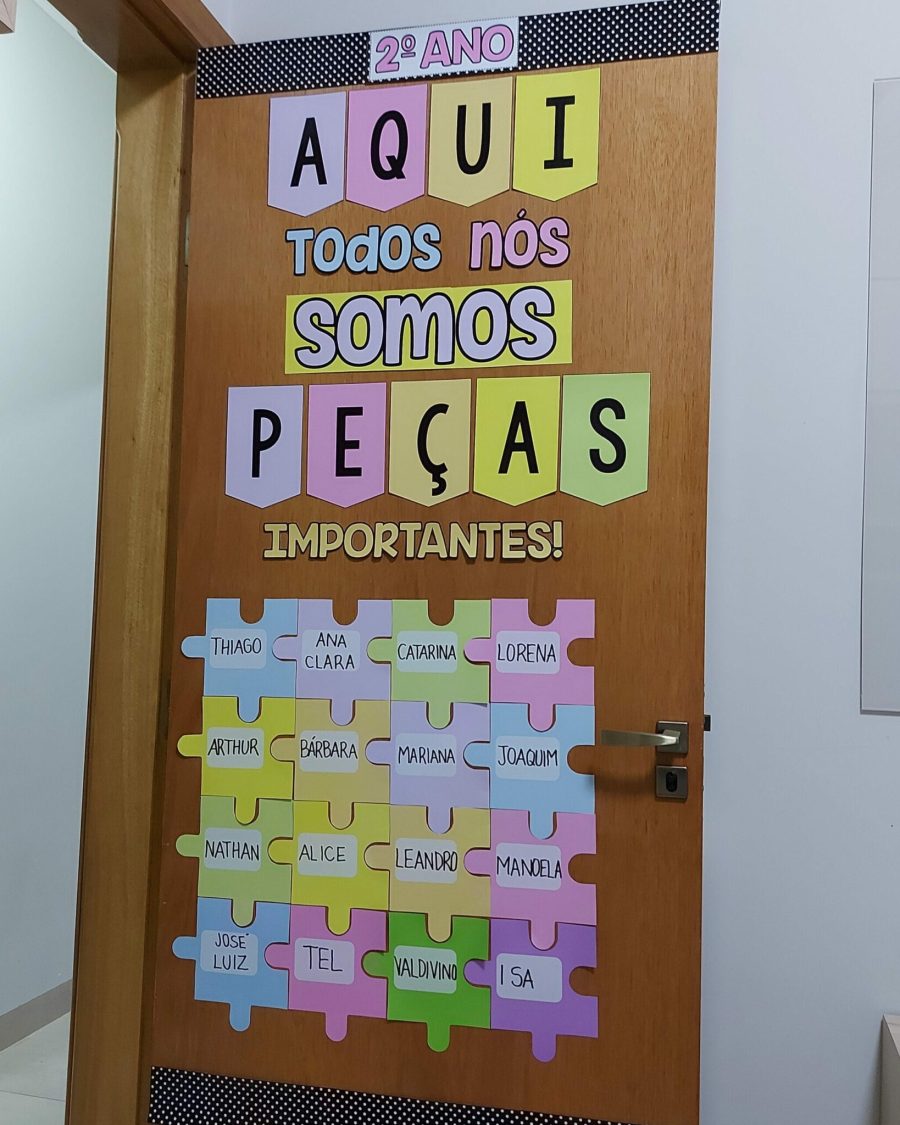 2º ANO
AQUI
TODOS NÓS
SOMOS
PEÇAS
IMPORTANTES!
THIAGO
ANA
CLARA
CATARINA
LORENA
ARTHUR
BÁRBARA
MARIANA
JOAQUIM
NATHAN
ALICE
LEANDRO
MANOELA
JOSÉ
LUIZ
TEL
VALDIVINO
ISA